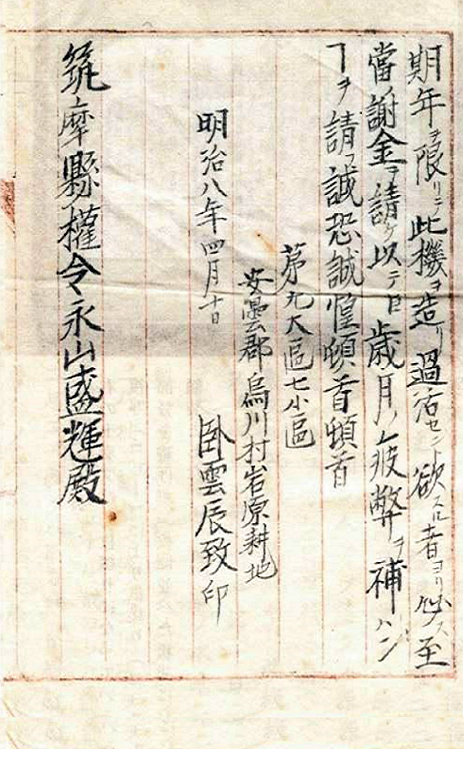 期年ヲ限リニ此機ヲ造リ過活セント欲スル者ヨリ必ス至
當ノ謝金ヲ請ケ以テ日歳月ノ疲弊ヲ補ハン
ヿヲ請フ誠恐誠惶頓首頓首
第九大區七小區
安曇郡烏川村岩原耕地
明治八年四月十日 臥雲辰致印
筑摩縣權令永山盛輝殿